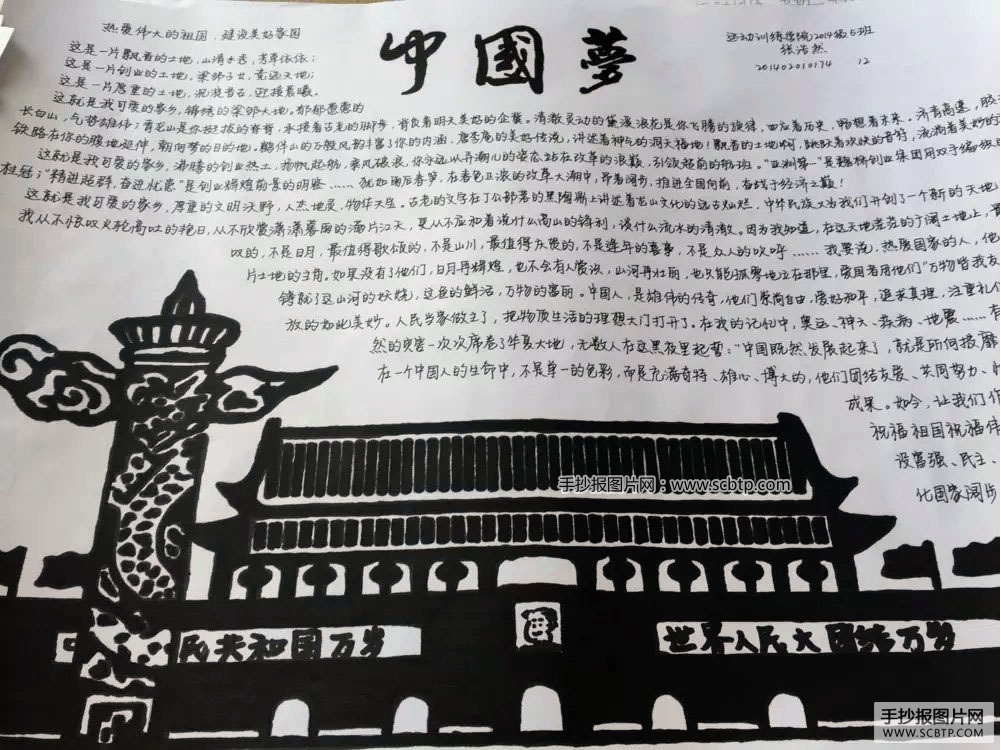 中國夢
运动训练学院2014级5班
张浩然
201402010174 12
热爱伟大的祖国，建设美好家园
这是一片飘香的土地，山清水秀，芳草依依；
这是一片创业的土地，梁邹子女，竞远天地；
这是一片厚重的土地，沉淀昔古，迎接晨曦。
这就是我可爱的家乡，锦绣的梁邹大地。郁郁葱葱的
长白山，气势雄伟；青龙山是你挺拔的脊背，承接着古老的脚步，背负着明天美好的企冀。清澈灵动的黛溪浪花是你飞腾的旋律，回应着历史，畅想着未来。济青高速，胶
铁路在你的腹地延伸，朝向梦的目的地。鹤伴山的万顷风韵丰富了你的内涵，唐李庵的美好传说，讲述着神气的洞天福地！飘香的土地啊，跳跃着欢快的音符，流淌着美妙的
这就是我可爱的家乡，沸腾的创业热土，扬帆起航，乘风破浪，你永远以弄潮儿的姿态站在改革的浪巅，引领超前的班。“亚洲第一”是魏桥创业集团用双手编
“精进超群，奋进忧患”是创业辉煌前景的明鉴……犹如雨后春笋，在春色正浓的改革大潮中，昂着阔步，推进全国向前，奋战于经济之巅！
这就是我可爱的家乡，厚重的文明沃野，人杰地灵，物华天宝。古老的文字在丁公部落的黑陶鼎上讲述着龙山文化的远古灿烂，中华民族又为我们开创了一个新的天地
我从不惊叹火轮高吐的艳日，从不欣赏潇潇暮雨的满片江天，更从不应和着谈什么高山的锋利，谈什么流水的清澈。因为我知道，在这天地苍茫的广阔土地上，
叹的，不是日月，最值得歌颂的，不是山川，最值得庆贺的，不是逢年的喜事，不是众人的欢呼……我要说，热爱国家的人，他
片土地的主角。如果没有了他们，日月再辉煌，也不会有人赏识，山河再壮丽，也只能孤零地立在那里，爱国者用他们“万物皆我友
铸就了这山河的妖娆，这鱼的鲜活，万物的富丽。中国人，是雄伟的传奇，他们崇尚自由，爱好和平，追求真理，注重礼仪
放的如此美妙。人民当家做主了，把物质生活的理想大门打开了。在我的记忆中，奥运、神天、疾病、地震……有
然的灾害一次次席卷了华夏大地，无数人在这黑夜里起誓：“中国既然发展起来了，就是所向披靡
在一个中国人的生命中，不是单一的色彩，而是充满奇特、雄心、博大的，他们团结友爱、共同努力、
成果。如今，让我们作
祝福祖国祝福伟
设富强、民主、
化国家阔步
手抄报图片网：www.scbtp.com
民共和国万岁
世界人民大团结万岁
手抄报图片网
WWW.SCBTP.COM